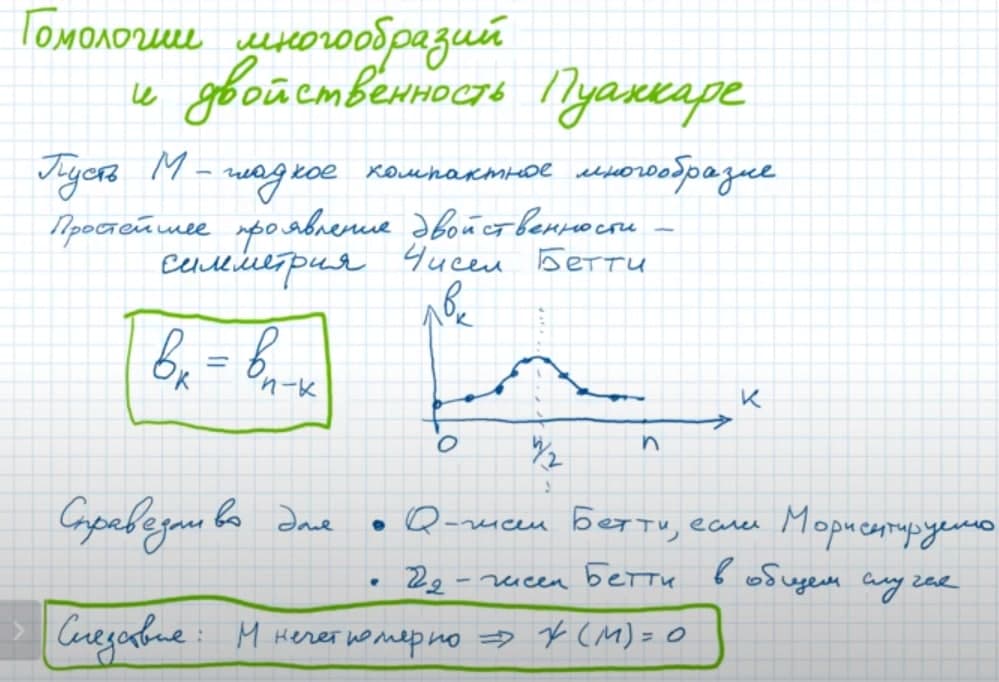 Гомологии многообразий
и двойственность Пуанкаре
Пусть M – гладкое компактное многообразие
Простейшее проявление двойственности –
симметрия чисел Бетти
b_k = b_{n-k}
b_k
k
0
n/2
n
Справедливо для • Q-чисел Бетти, если M ориентируемо
• Z_2 - чисел Бетти в общем случае
Следствие: M нечетномерно ⇒ χ(M) = 0